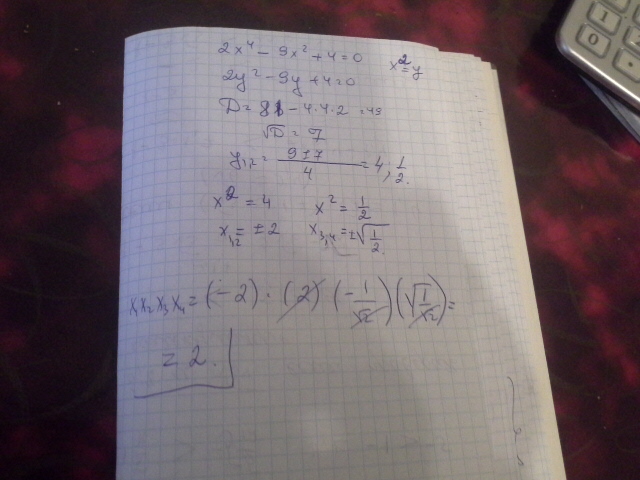 2x⁴ - 9x² + 4 = 0 x² = y
2y² - 9y + 4 = 0
D = 81 - 4·4·2 = 49
√D = 7
y₁,₂ = (9 ± 7)/4 = 4; 1/2.
x² = 4 x² = 1/2
x₁,₂ = ±2 x₃,₄ = ±√(1/2).
x₁x₂x₃x₄ = (-2)·(2)(-1/√2)(√1/√2) =
= 2.
1
0